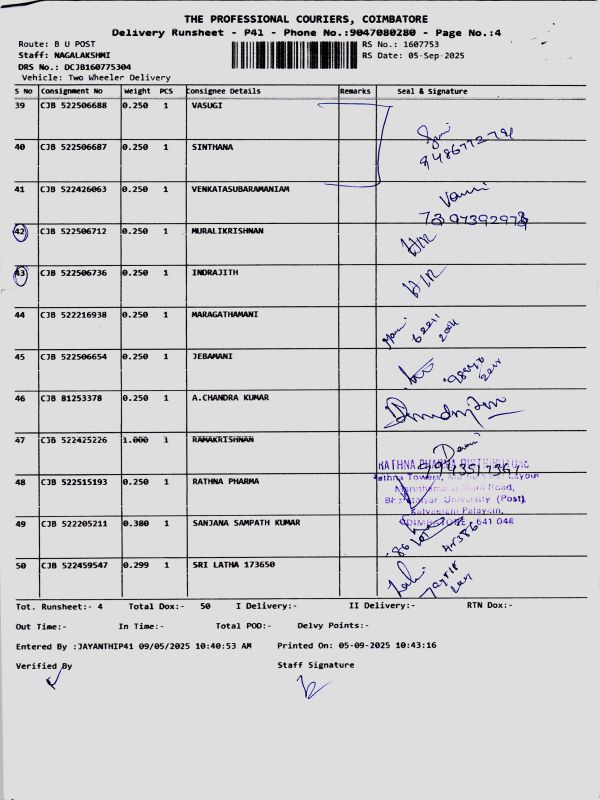 THE PROFESSIONAL COURIERS, COIMBATORE
Delivery Runsheet - P41 - Phone No.:9047080280 - Page No.:4
Route: B U POST RS No.: 1607753
Staff: NAGALAKSHMI RS Date: 05-Sep-2025
DRS No.: DCJB160775304
Vehicle: Two Wheeler Delivery
S No Consignment No Weight PCS Consignee Details Remarks Seal & Signature
39 CJB 522506688 0.250 1 VASUGI
40 CJB 522506687 0.250 1 SINTHANA
41 CJB 522426063 0.250 1 VENKATASUBARAMANIAM
42 CJB 522506712 0.250 1 MURALIKRISHNAN
43 CJB 522506736 0.250 1 INDRAJITH
44 CJB 522216938 0.250 1 MARAGATHAMANI
45 CJB 522506654 0.250 1 JEBAMANI
46 CJB 81253378 0.250 1 A.CHANDRA KUMAR
47 CJB 522425226 1.000 1 RAMAKRISHNAN
48 CJB 522515193 0.250 1 RATHNA PHARMA
RATHNA PHARMA
Rathna Towers,
Road,
University (Post),
Kalveeram Palayam,
COIMBATORE 641 046
49 CJB 522205211 0.380 1 SANJANA SAMPATH KUMAR
50 CJB 522459547 0.299 1 SRI LATHA 173650
Tot. Runsheet:- 4 Total Dox:- 50 I Delivery:- II Delivery:- RTN Dox:-
Out Time:- In Time:- Total POD:- Delvy Points:-
Entered By :JAYANTHIP41 09/05/2025 10:40:53 AM Printed On: 05-09-2025 10:43:16
Verified By Staff Signature